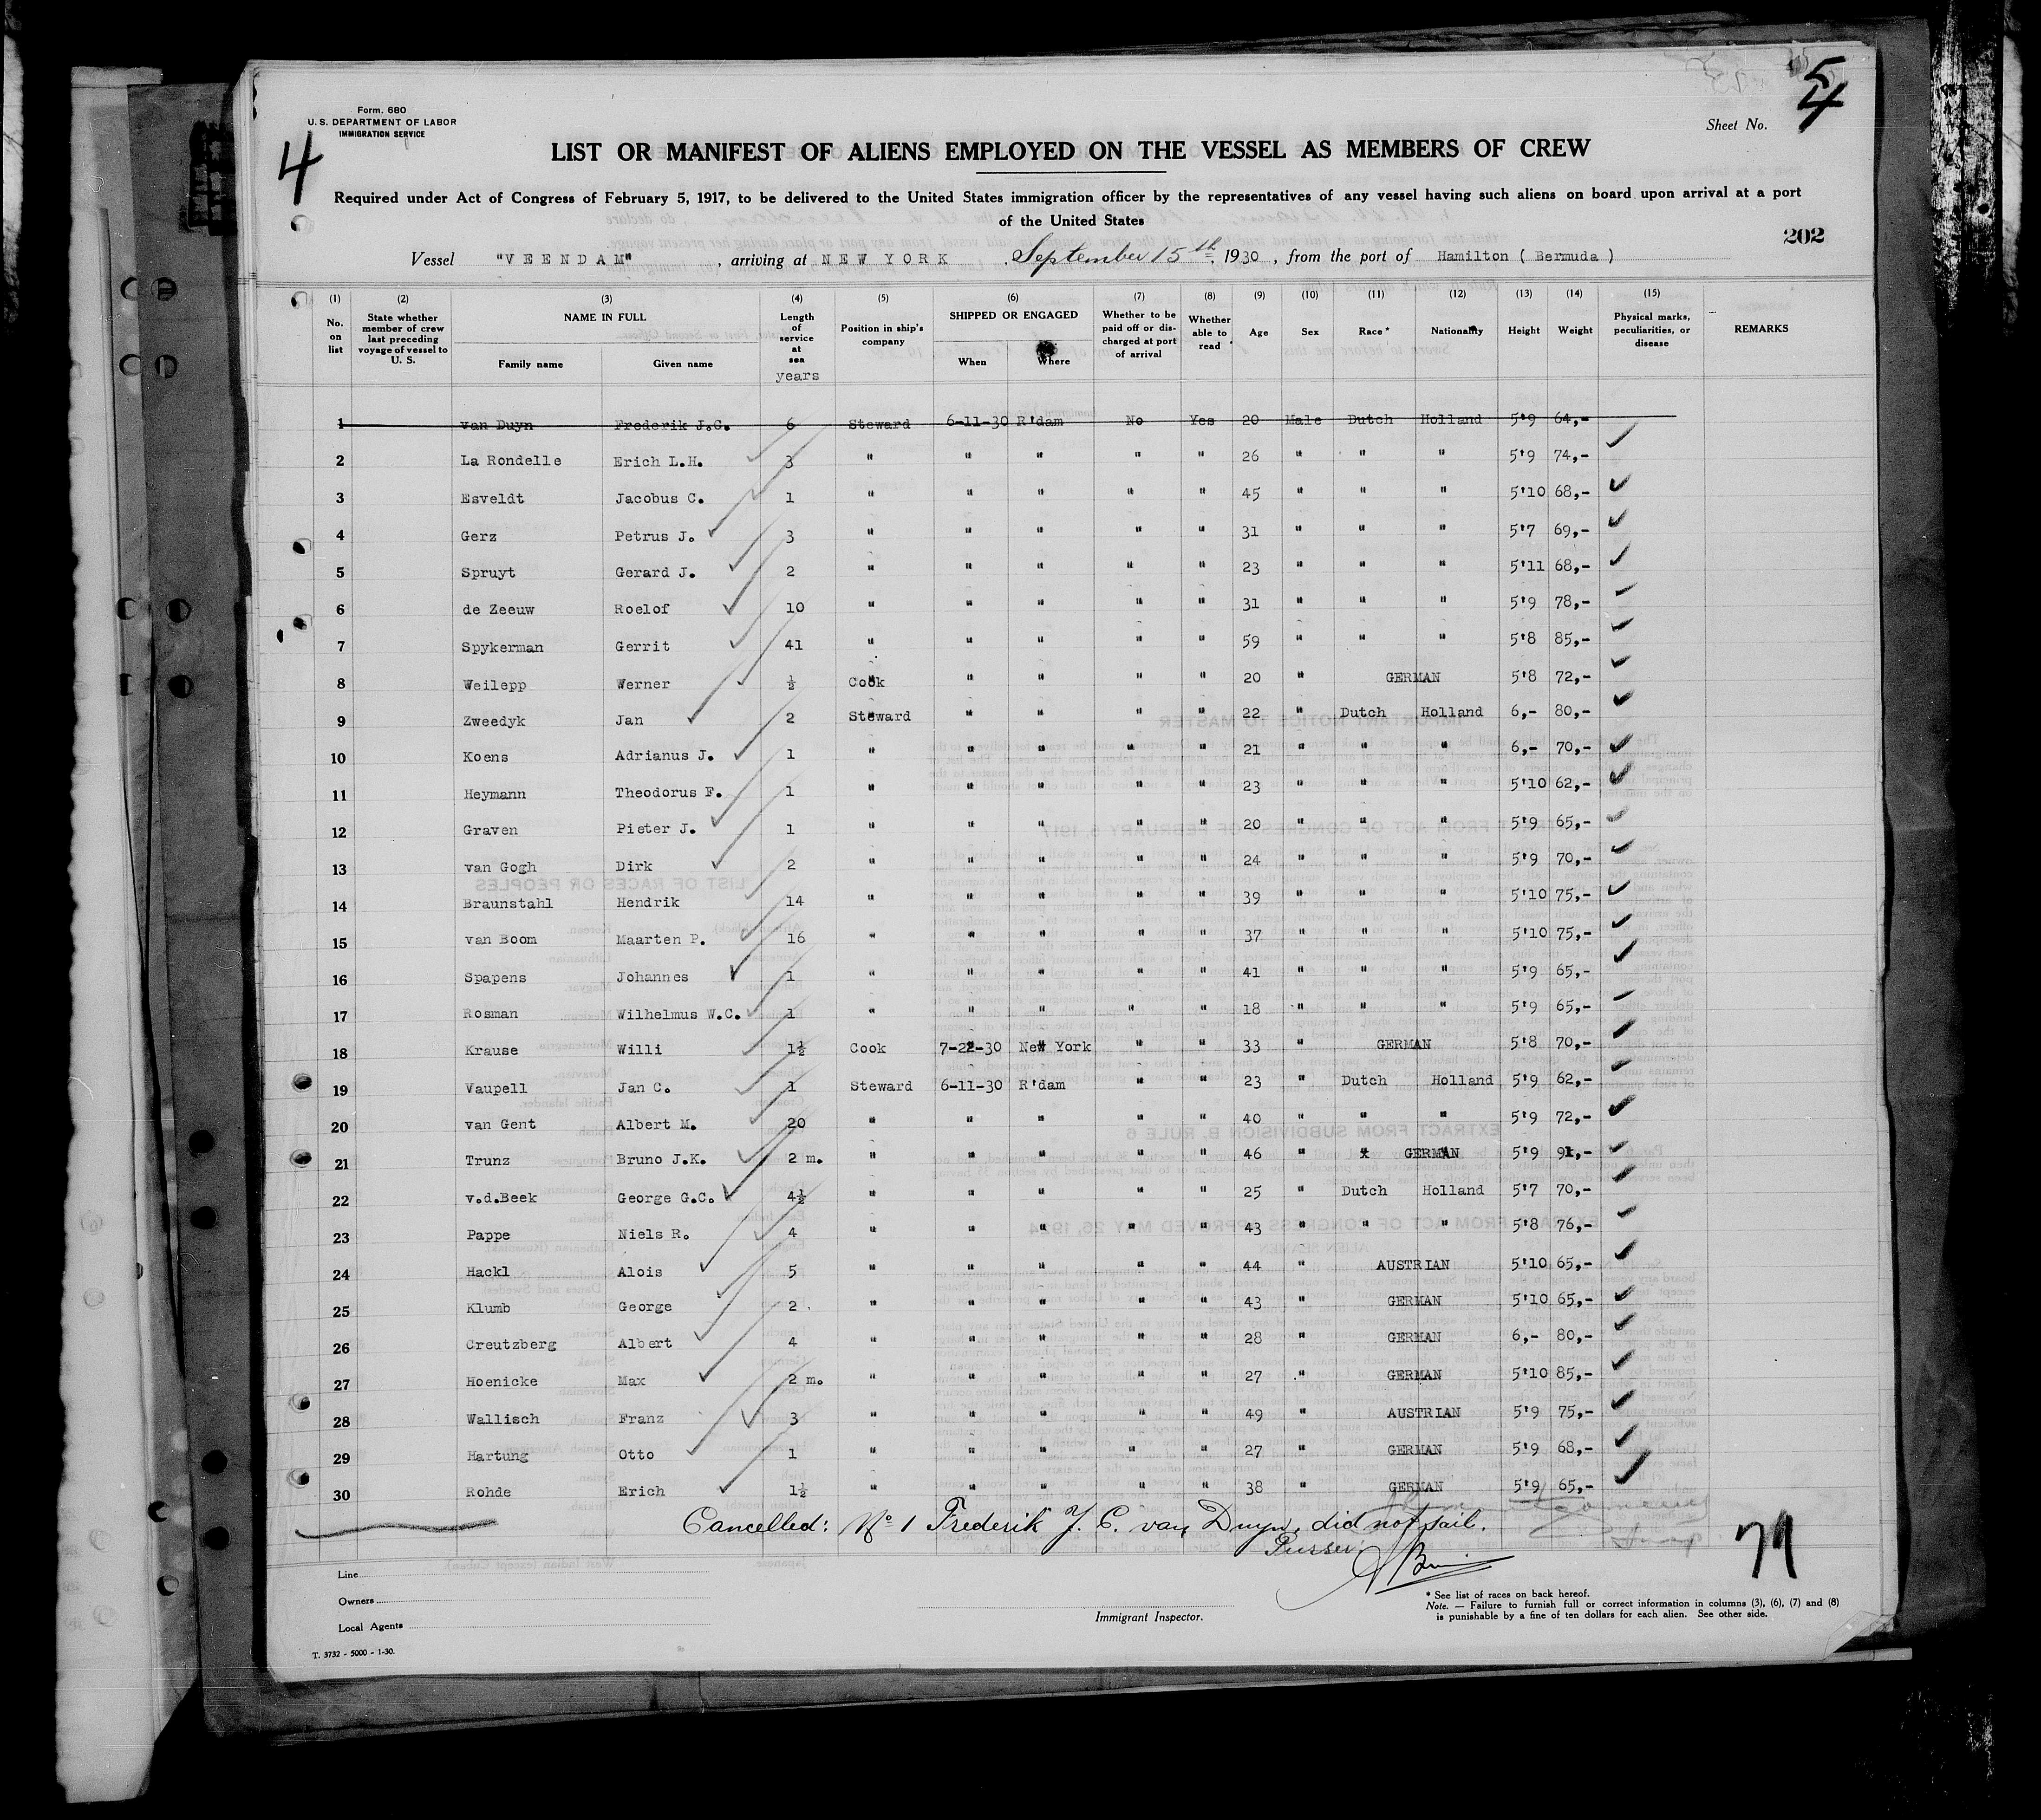 Form. 680
U. S. DEPARTMENT OF LABOR
IMMIGRATION SERVICE
4
5
4
Sheet No.
LIST OR MANIFEST OF ALIENS EMPLOYED ON THE VESSEL AS MEMBERS OF CREW
Required under Act of Congress of February 5, 1917, to be delivered to the United States immigration officer by the representatives of any vessel having such aliens on board upon arrival at a port
of the United States
202
Vessel "VEENDAM", arriving at NEW YORK, September 15th, 1930, from the port of Hamilton ( Bermuda )
(1) (2) (3) (4) (5) (6) (7) (8) (9) (10) (11) (12) (13) (14) (15)
No. on list State whether member of crew last preceding voyage of vessel to U. S. NAME IN FULL Family name Given name Length of service at sea years Position in ship's company SHIPPED OR ENGAGED When Where Whether to be paid off or discharged at port of arrival Whether able to read Age Sex Race* Nationality Height Weight Physical marks, peculiarities, or disease REMARKS
1 van Duyn Frederik J.C. 6 Steward 6-11-30 R'dam No Yes 20 Male Dutch Holland 5'9 64,-
2 La Rondelle Erich L.H. 3 " " " " " 26 " " " 5'9 74,-
3 Esveldt Jacobus C. 1 " " " " " 45 " " " 5'10 68,-
4 Gerz Petrus J. 3 " " " " " 31 " " " 5'7 69,-
5 Spruyt Gerard J. 2 " " " " " 23 " " " 5'11 68,-
6 de Zeeuw Roelof 10 " " " " " 31 " " " 5'9 78,-
7 Spykerman Gerrit 41 " " " " " 59 " " " 5'8 85,-
8 Weilepp Werner ½ Cook " " " " 20 " GERMAN 5'8 72,-
9 Zweedyk Jan 2 Steward " " " " 22 " Dutch Holland 6,- 80,-
10 Koens Adrianus J. 1 " " " " " 21 " " " 6,- 70,-
11 Heymann Theodorus F. 1 " " " " " 23 " " " 5'10 62,-
12 Graven Pieter J. 1 " " " " " 20 " " " 5'9 65,-
13 van Gogh Dirk 2 " " " " " 24 " " " 5'9 70,-
14 Braunstahl Hendrik 14 " " " " " 39 " " " 5'10 75,-
15 van Boom Maarten P. 16 " " " " " 37 " " " 5'10 75,-
16 Spapens Johannes 1 " " " " " 41 " " " 5'9 65,-
17 Rosman Wilhelmus W.C. 1 " " " " " 18 " " " 5'9 65,-
18 Krause Willi 1½ Cook 7-22-30 New York " " 33 " GERMAN 5'8 70,-
19 Vaupell Jan C. 1 Steward 6-11-30 R'dam " " 23 " Dutch Holland 5'9 62,-
20 van Gent Albert M. 20 " " " " " 40 " " " 5'9 72,-
21 Trunz Bruno J.K. 2 m. " " " " " 46 " GERMAN 5'9 91,-
22 v.d.Beek George G.C. 4½ " " " " " 25 " Dutch Holland 5'7 70,-
23 Pappe Niels R. 4 " " " " " 43 " " " 5'8 76,-
24 Hackl Alois 5 " " " " " 44 " AUSTRIAN 5'10 65,-
25 Klumb George 2 " " " " " 43 " GERMAN 5'10 65,-
26 Creutzberg Albert 4 " " " " " 28 " GERMAN 6,- 80,-
27 Hoenicke Max 2 m. " " " " " 27 " GERMAN 5'10 85,-
28 Wallisch Franz 3 " " " " " 49 " AUSTRIAN 5'9 75,-
29 Hartung Otto 1 " " " " " 27 " GERMAN 5'9 68,-
30 Rohde Erich 1½ " " " " " 38 " GERMAN 5'9 65,-
Cancelled: No 1 Frederik J. C. van Duyn, did not sail.
Purser:
Line
Owners
Local Agents
Immigrant Inspector.
* See list of races on back hereof.
Note. — Failure to furnish full or correct information in columns (3), (6), (7) and (8)
is punishable by a fine of ten dollars for each alien. See other side.
T. 3732 - 5000 - 1-30.